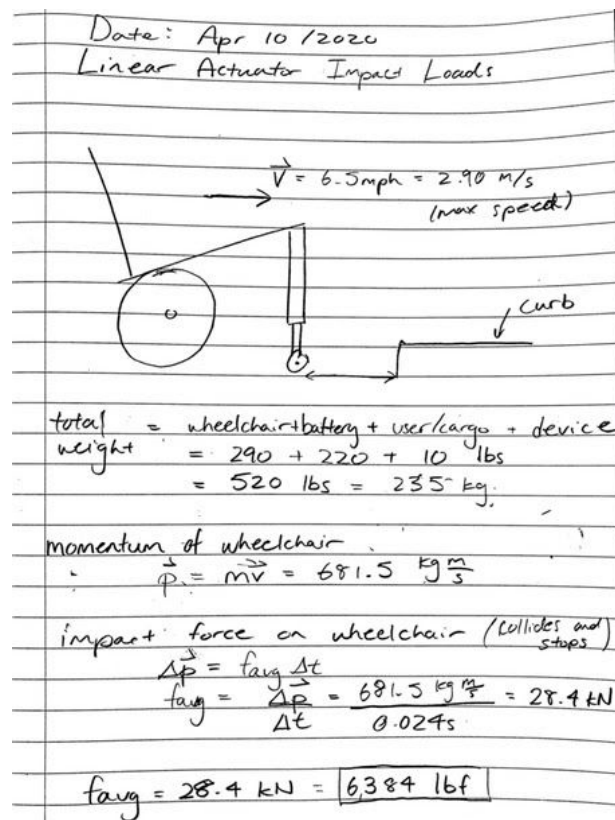 Date: Apr 10/2020
Linear Actuator Impact Loads
V⃗ = 6.5mph = 2.90 m/s
(max speed)
curb
total weight = wheelchair+battery + user/cargo + device
= 290 + 220 + 10 lbs
= 520 lbs = 235 kg.
momentum of wheelchair
p⃗ = mv⃗ = 681.5 kg m/s
impact force on wheelchair (collides and stops)
Δp⃗ = favg Δt
favg = Δp⃗/Δt = 681.5 kg m/s / 0.024s = 28.4 kN
favg = 28.4 kN = 6,384 lbf